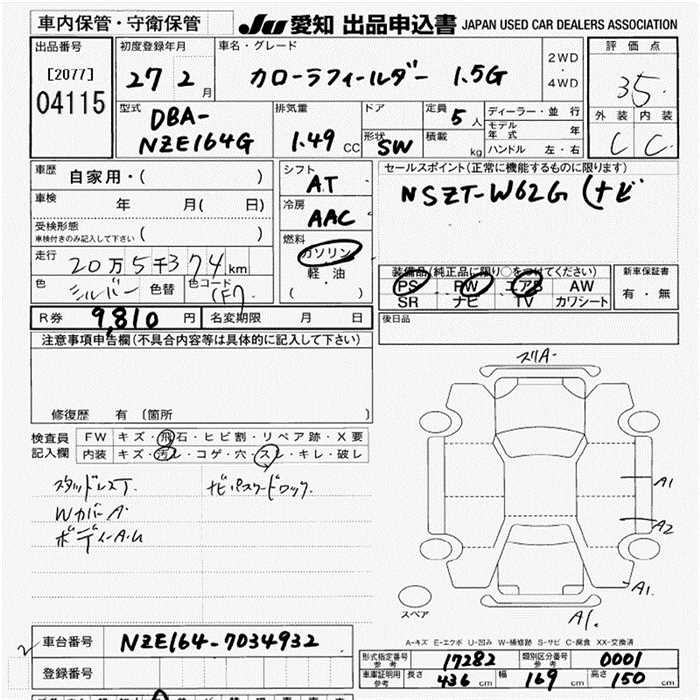 車内保管・守衛保管
JU 愛知 出品申込書 JAPAN USED CAR DEALERS ASSOCIATION
出品番号
[2077]
04115
初度登録年月
27 2 月
車名・グレード
カローラフィールダー 1.5G
2WD
・
4WD
評価点
3.5
外装 内装
C C
型式
DBA-
NZE164G
排気量
1.49 CC
ドア
形状 SW
定員 5 人
積載 kg
ディーラー・並 行
モデル年式 年
ハンドル 左・右
車歴 自家用・( )
車検 年 月( 日)
受検形態
車検付きのみ記入して下さい ( )
走行 20万5千374km
色 シルバー 色替 色コード (F7)
シフト
AT
冷房
AAC
燃料
ガソリン
軽・油
( )
セールスポイント(正常に機能するものに限ります)
NSZT-W62G (ナビ
装備品(純正品に限り○をつけてください)
PS PW エアB AW
SR ナビ TV カワシート
新車保証書
有・無
R券 9,810 円 名変期限 月 日
後日品
注意事項申告欄(不具合内容等は具体的に記入して下さい)
修復歴 有〔箇所 〕
検査員
記入欄
FW キズ・飛石・ヒビ割・リペア跡・X要
内装 キズ・汚レ・コゲ・穴・スレ・キレ・破レ
スタッドレスT. ナビパスワードロック.
WカバーA
ボディーA.U
スリA-
A1
A2
A1.
A1.
スペア
A-キズ E-エクボ U-凹み W-補修跡 S-サビ C-腐食 XX-交換済
2
車台番号 NZE164-7034932
登録番号
形式指定番号参考 17282 類別区分番号参考 0001
車庫証明用参考 長さ 436 cm 幅 169 cm 高さ 150 cm